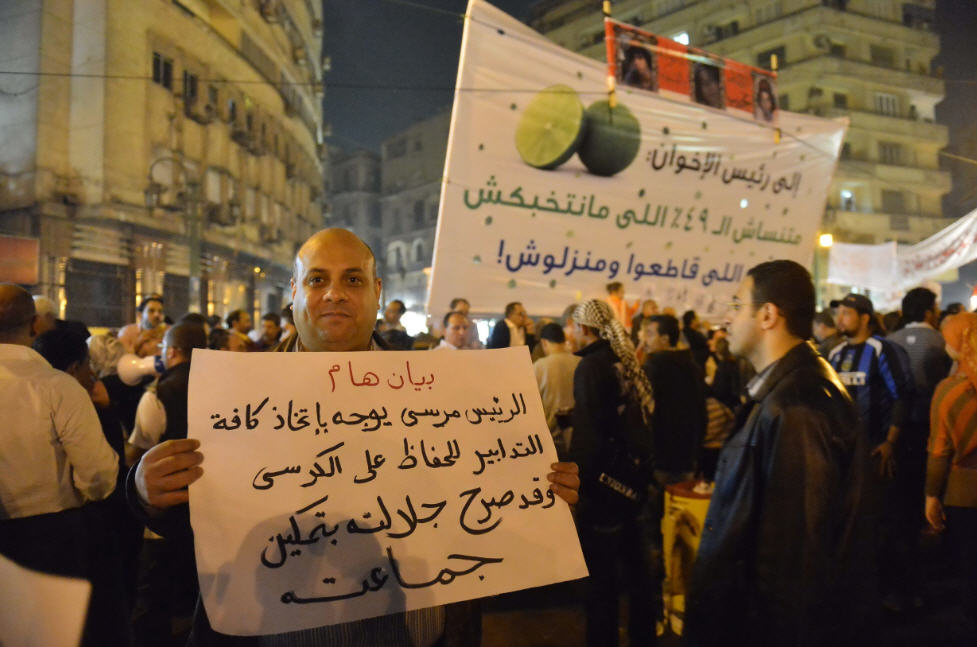 إلى رئيس الإخوان:
متنساش الـ ٤٩٪ اللى مانتخبكش
اللى قاطعوا ومنزلوش!
بيان هام
الرئيس مرسى يوجه بإتخاذ كافة
التدابير للحفاظ على الكرسى
وقد صرح جلالته بتمكين
جماعته
PIRELLI